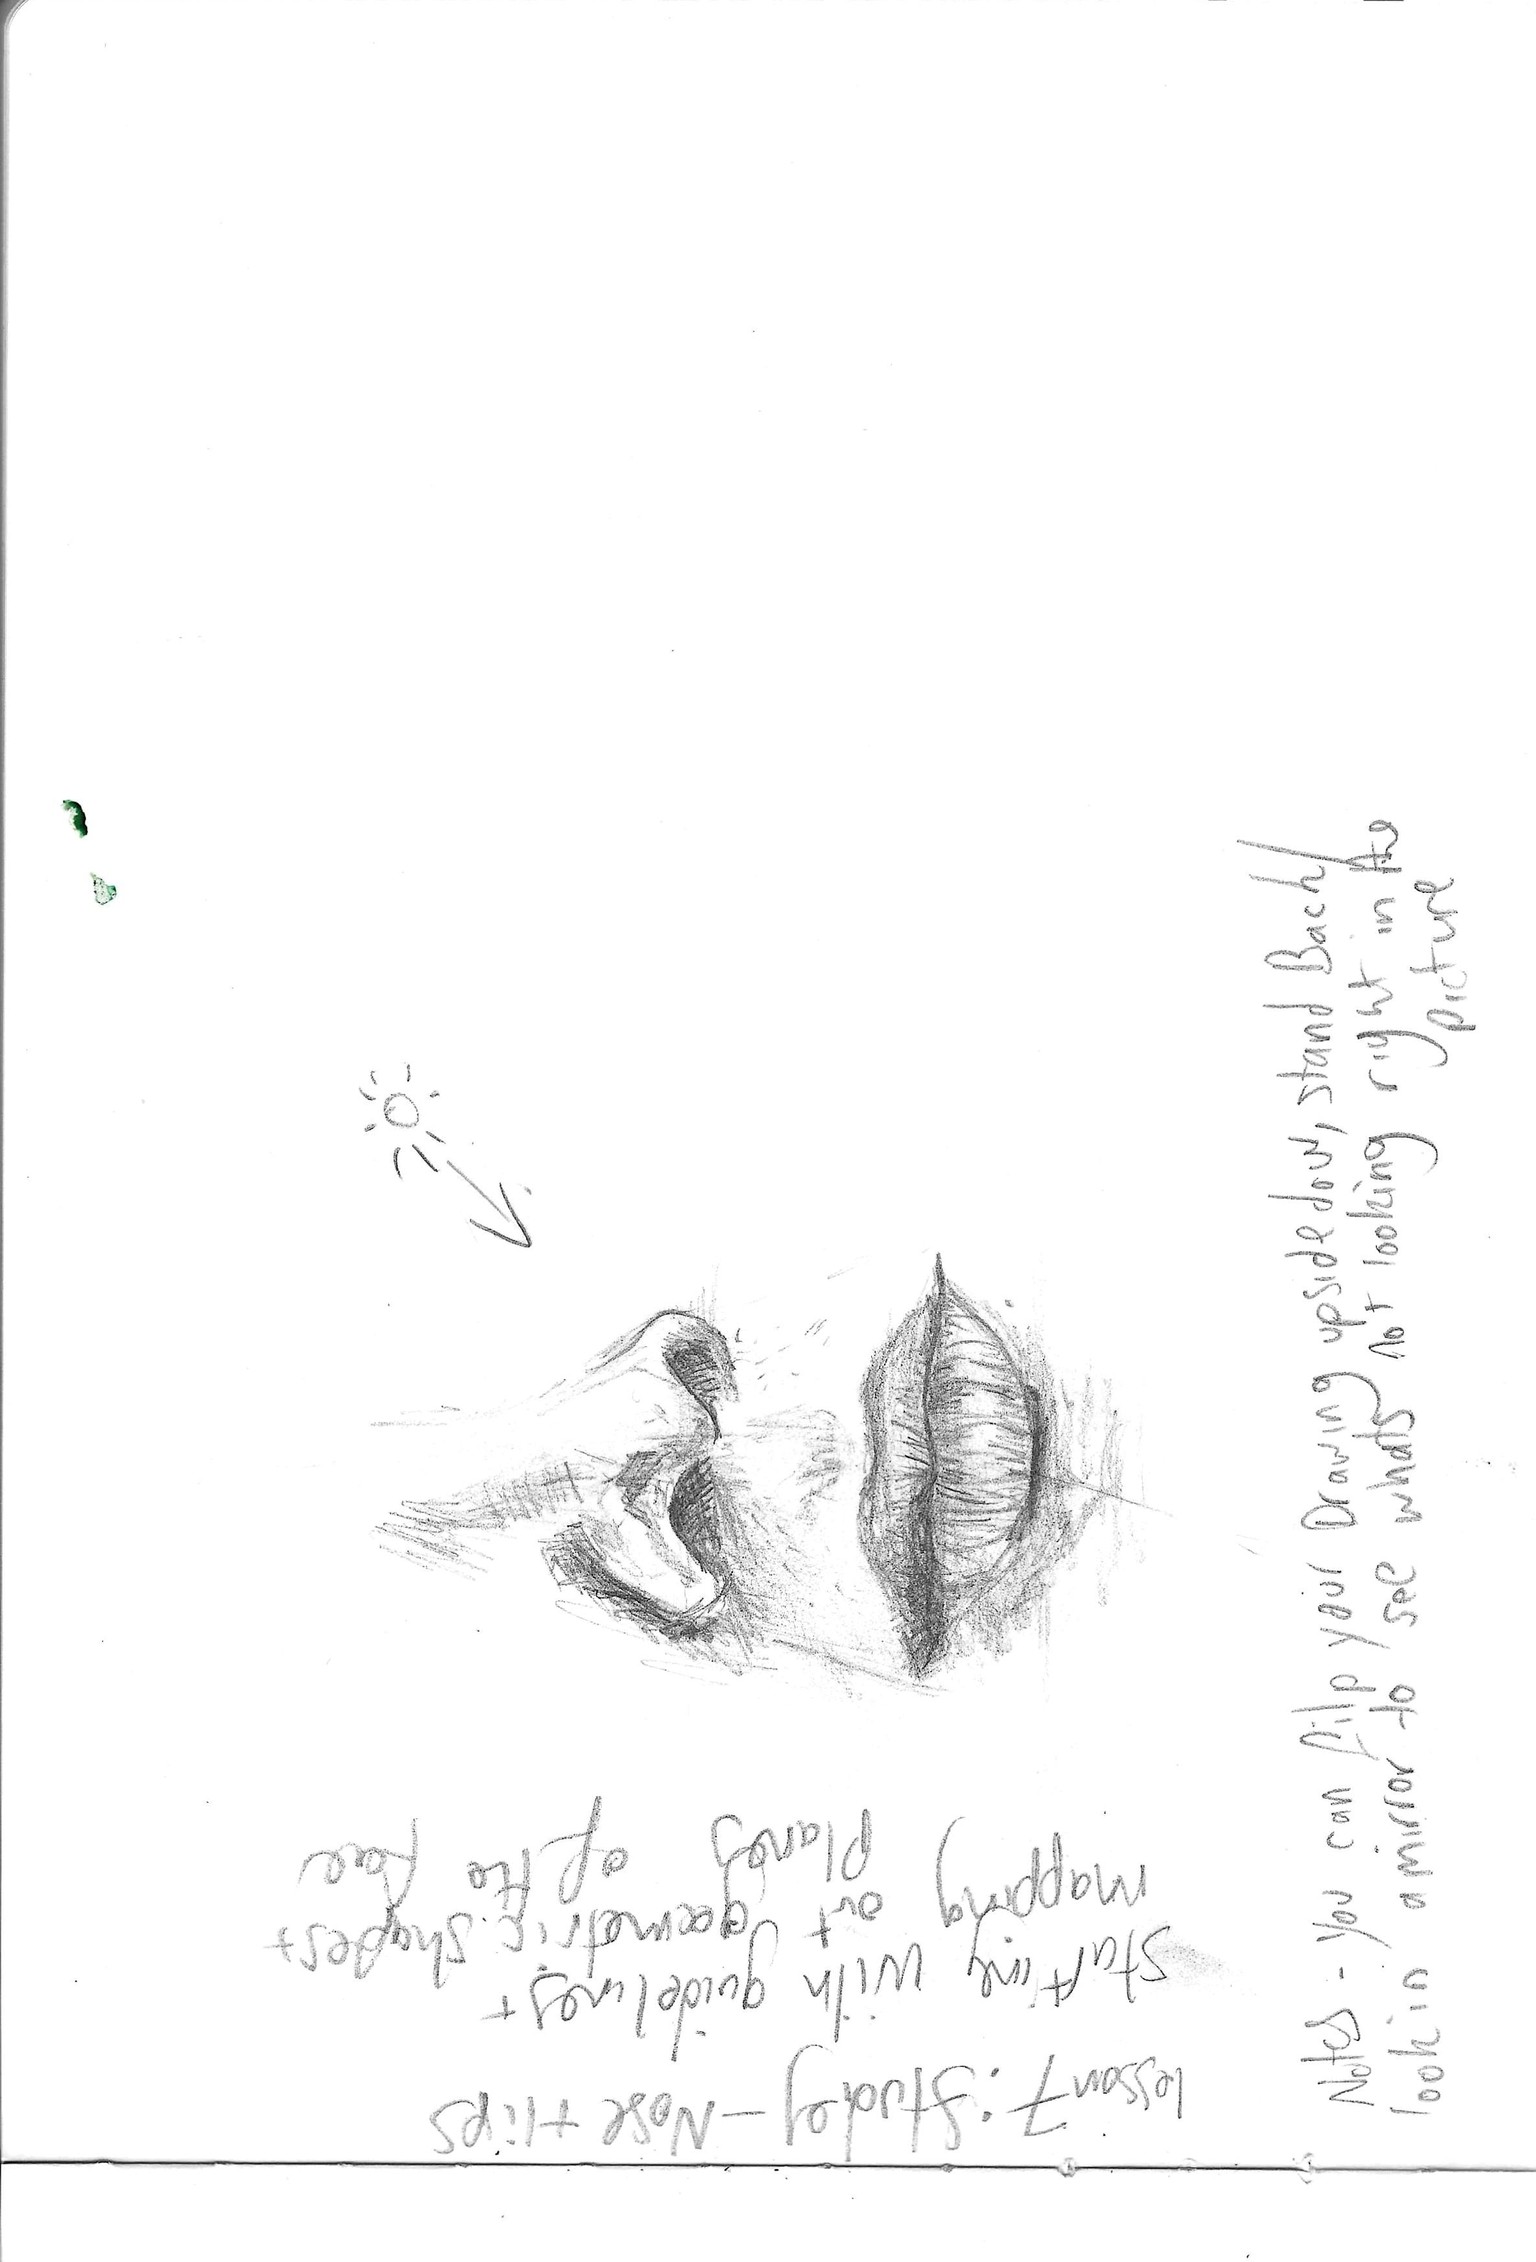 Lesson 7: Study - Nose + lips
starting with guidelines +
mapping out geometric shapes +
planes of the face
Notes - You can filp your Drawing upside down, stand Back/
look in a mirror to see whats not looking right in the
picture